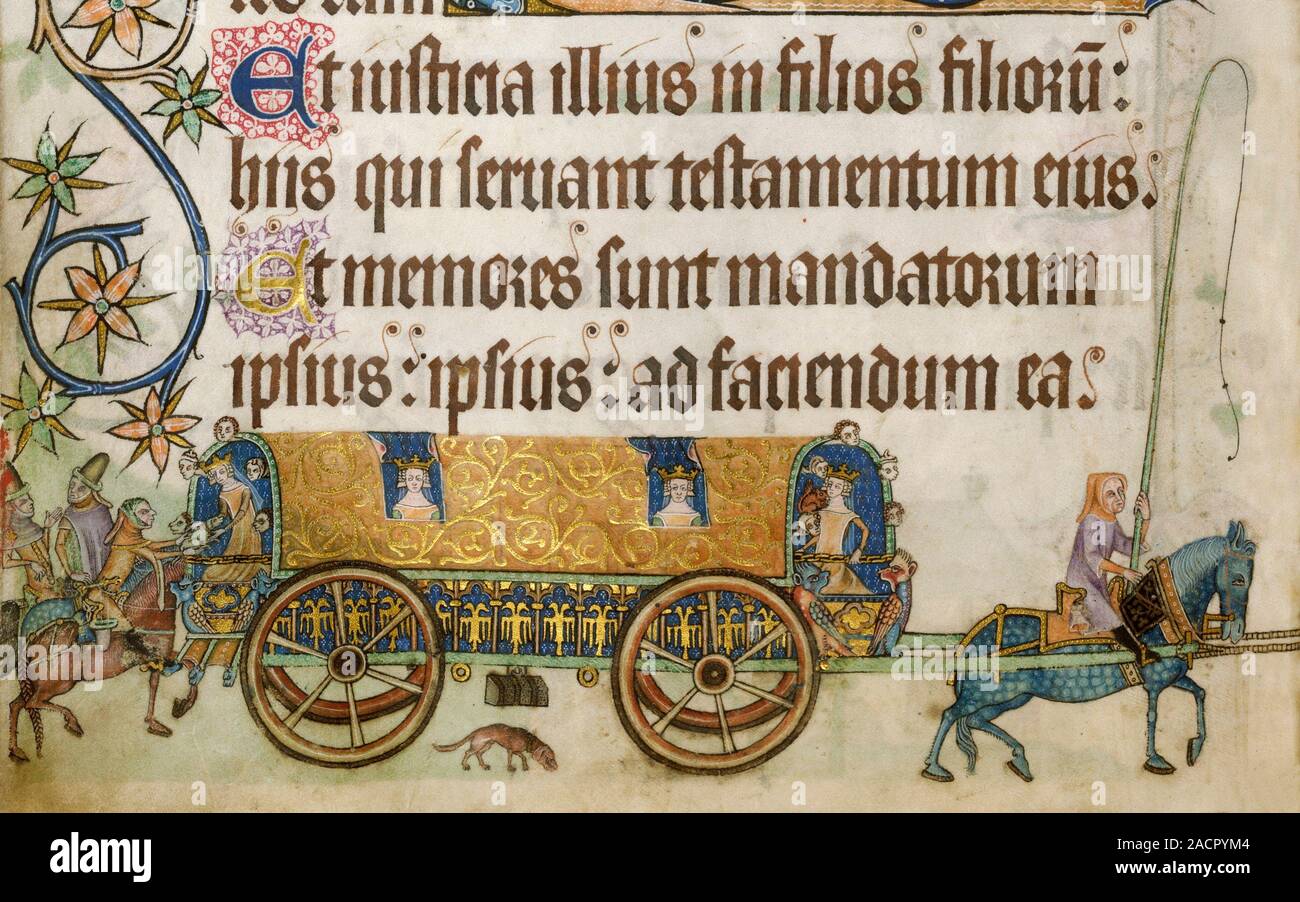 Et iusticia illius in filios filiorū:
hiis qui seruant testamentum eius.
Et memores sunt mandatorum
ipsius: ipsius: ad faciendum ea
a alamy
alamy
Image ID: 2ACPYM4
www.alamy.com